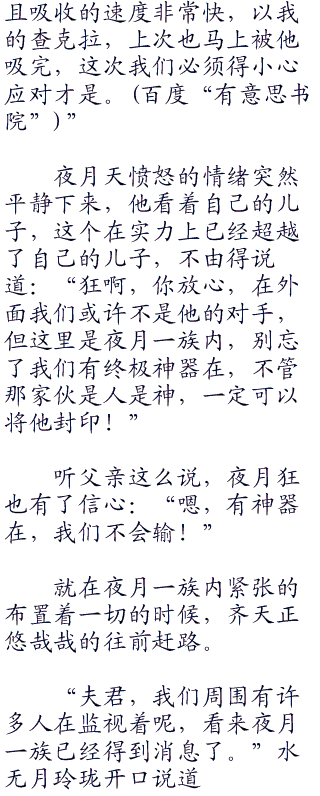 且吸收的速度非常快，以我
的查克拉，上次也马上被他
吸完，这次我们必须得小心
应对才是。(百度“有意思书
院”)”
夜月天愤怒的情绪突然
平静下来，他看着自己的儿
子，这个在实力上已经超越
了自己的儿子，不由得说
道：“狂啊，你放心，在外
面我们或许不是他的对手，
但这里是夜月一族内，别忘
了我们有终极神器在，不管
那家伙是人是神，一定可以
将他封印！”
听父亲这么说，夜月狂
也有了信心：“嗯，有神器
在，我们不会输！”
就在夜月一族内紧张的
布置着一切的时候，齐天正
悠哉哉的往前赶路。
“夫君，我们周围有许
多人在监视着呢，看来夜月
一族已经得到消息了。”水
无月玲珑开口说道